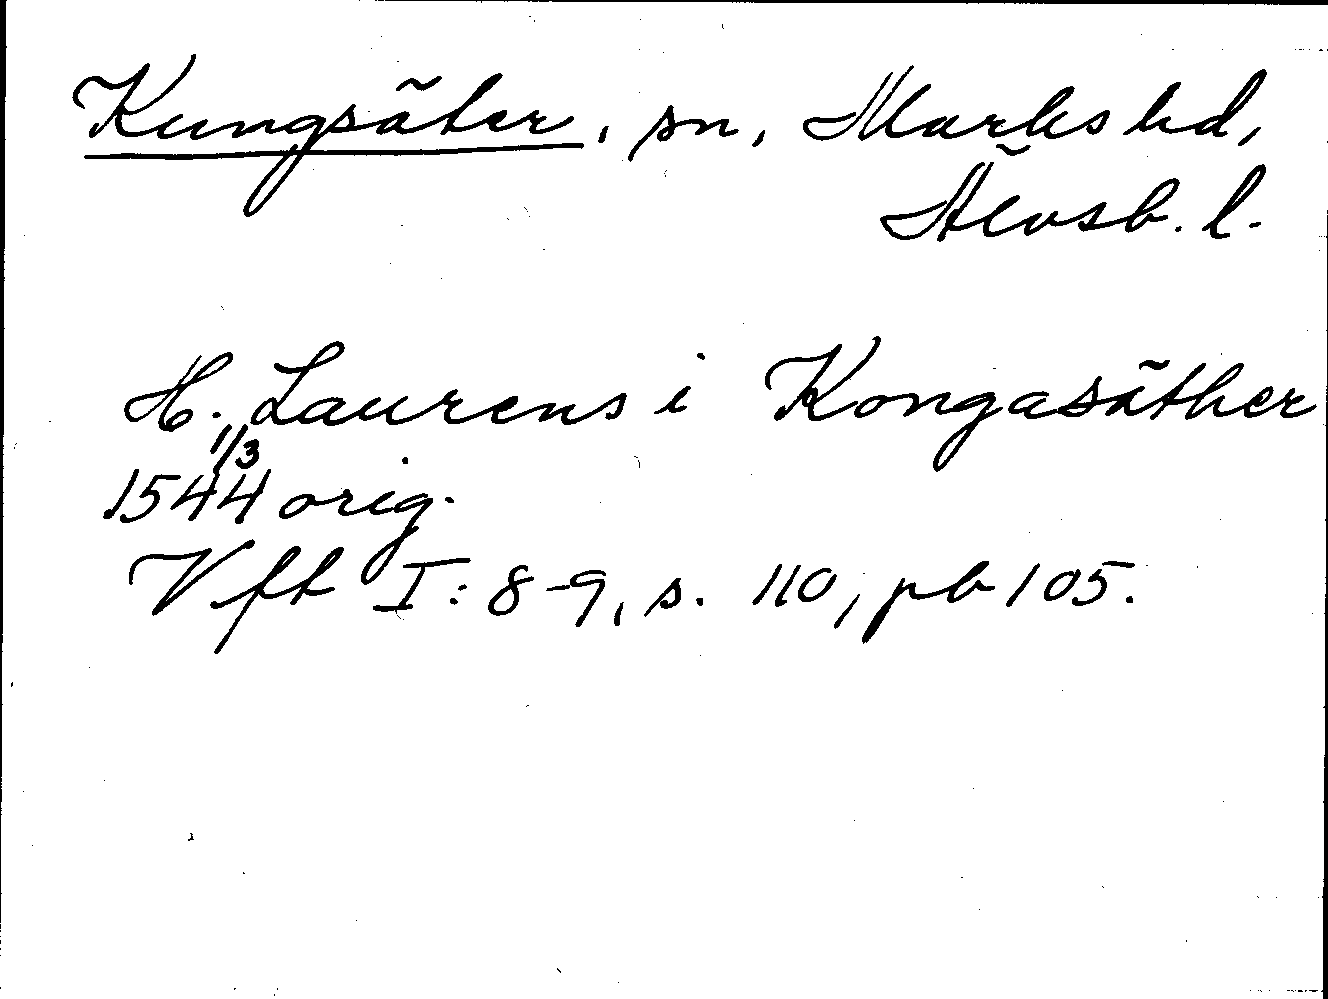 Kungsäter, sn, Marks hd,
Älvsb. l.
H. Laurens i Kongasäther
1/3
1544 orig.
Vft I: 8-9, s. 110, pb 105.